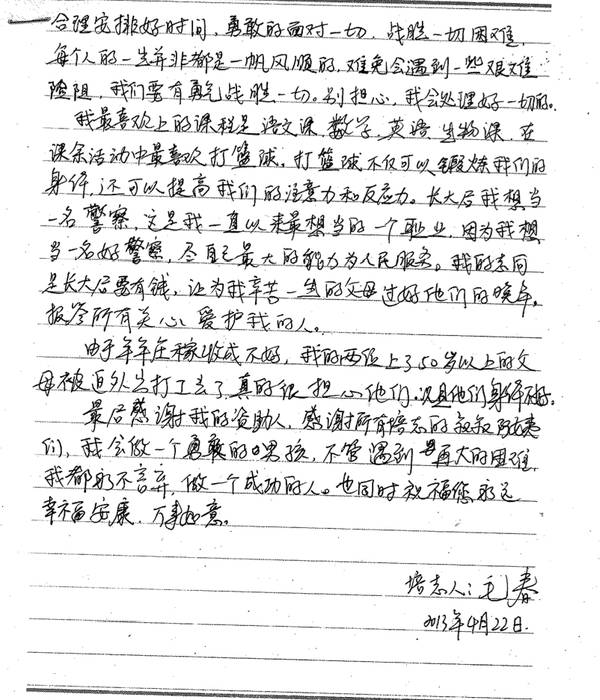 合理安排好时间，勇敢的面对一切，战胜一切困难，
每个人的一生并非都是一帆风顺的，难免会遇到一些艰难
险阻，我们要有勇气战胜一切。别担心，我会处理好一切的。
我最喜欢上的课程是语文课、数学、英语、生物课，在
课余活动中最喜欢打篮球，打篮球不仅可以锻炼我们的
身体，还可以提高我们的注意力和反应力。长大后我想当
一名警察，这是我一直以来最想当的一个职业，因为我想
当一名好警察，尽自己最大的能力为人民服务。我的志向
是长大后要有钱，让为我辛苦一生的父母过好他们的晚年。
报答所有关心、爱护我的人。
由于年年庄稼收成不好，我的两位上了50岁以上的父
母被迫外出打工去了，真的很担心他们，况且他们身体不好。
最后感谢我的资助人，感谢所有培志的叔叔阿姨
们，我会做一个勇敢的男孩，不管遇到再大的困难，
我都永不言弃，做一个成功的人。也同时祝福您永远
幸福安康，万事如意。
培志人：毛春
2013年4月22日.